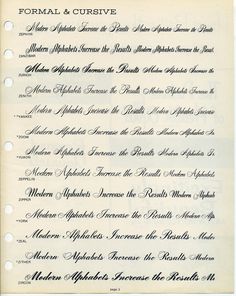 FORMAL & CURSIVE
Modern Alphabets Increase the Results Modern Alphabets Increase the Results
ZEPHYR
Modern Alphabets Increase the Results Modern Alphabets Increase the Resul.
ZANZIBAR
Modern Alphabets Increase the Results Modern Alphabets Increase the
ZENITH
Modern Alphabets Increase the Results Modern Alphabets Increase
Modern Alphabets Increase the Results Modern Alphabets Increase
Modern Alphabets Increase the Results Modern Alphabets In
YUKON
Modern Alphabets Increase the Results Modern Alphabets
ZEPPELIN
Modern Alphabets Increase the Results Modern Alphab
ZIPPER
Modern Alphabets Increase the Results Modern Alp
YORK
Modern Alphabets Increase the Results Moder
ZEAL
Modern Alphabets Increase the Results Mode
Modern Alphabets Increase the Results Mo
page 2